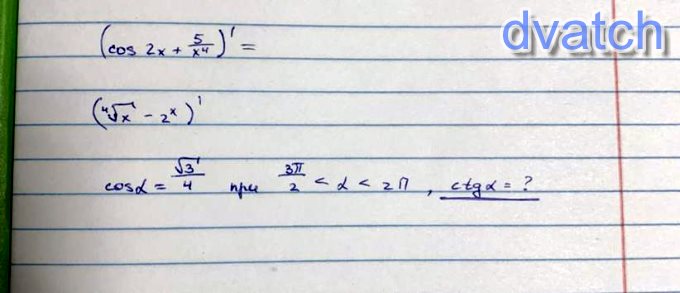 dvatch
(cos 2x + 5/x⁴)' =
(⁴√x - 2ˣ)'
cosα = √3/4 при 3π/2 < α < 2π, ctgα = ?